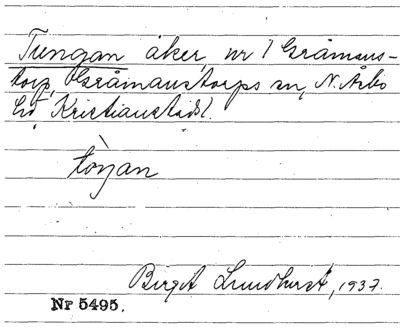 Tungan åker, nr 1 Gråmans-
torp, Gråmanstorps sn, N. Åsbo
hd, Kristianstads l.
tòŋan
Birgit Lundkvist, 1937.
Nr 5495.